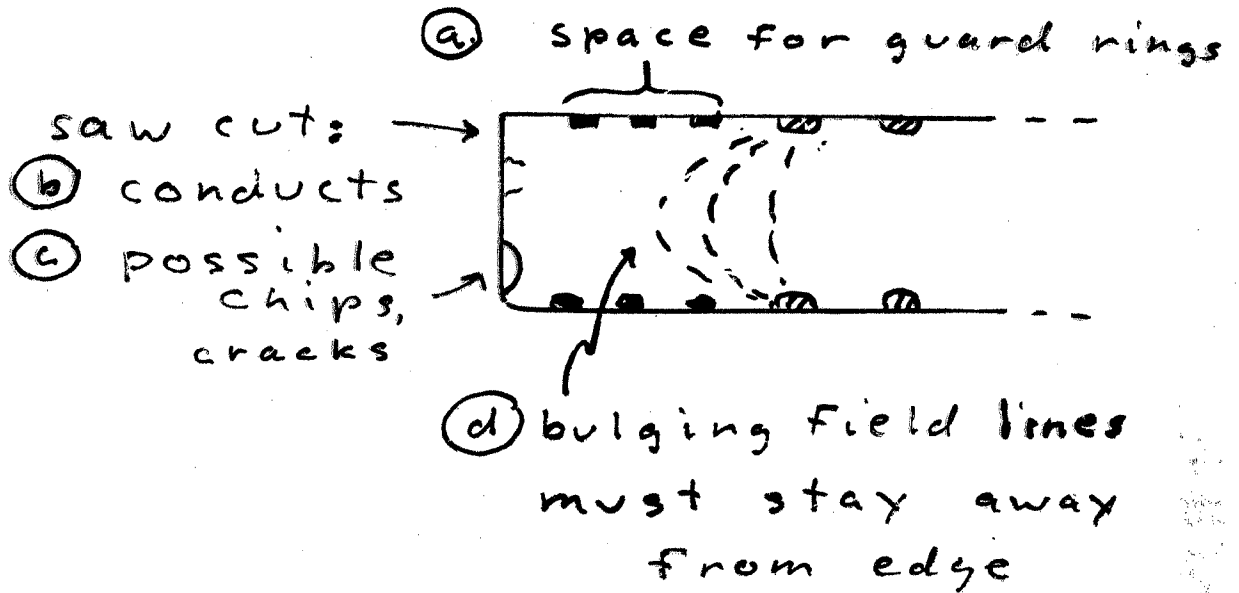 a. space for guard rings
saw cut:
b conducts
c possible
chips,
cracks
d bulging field lines
must stay away
from edge